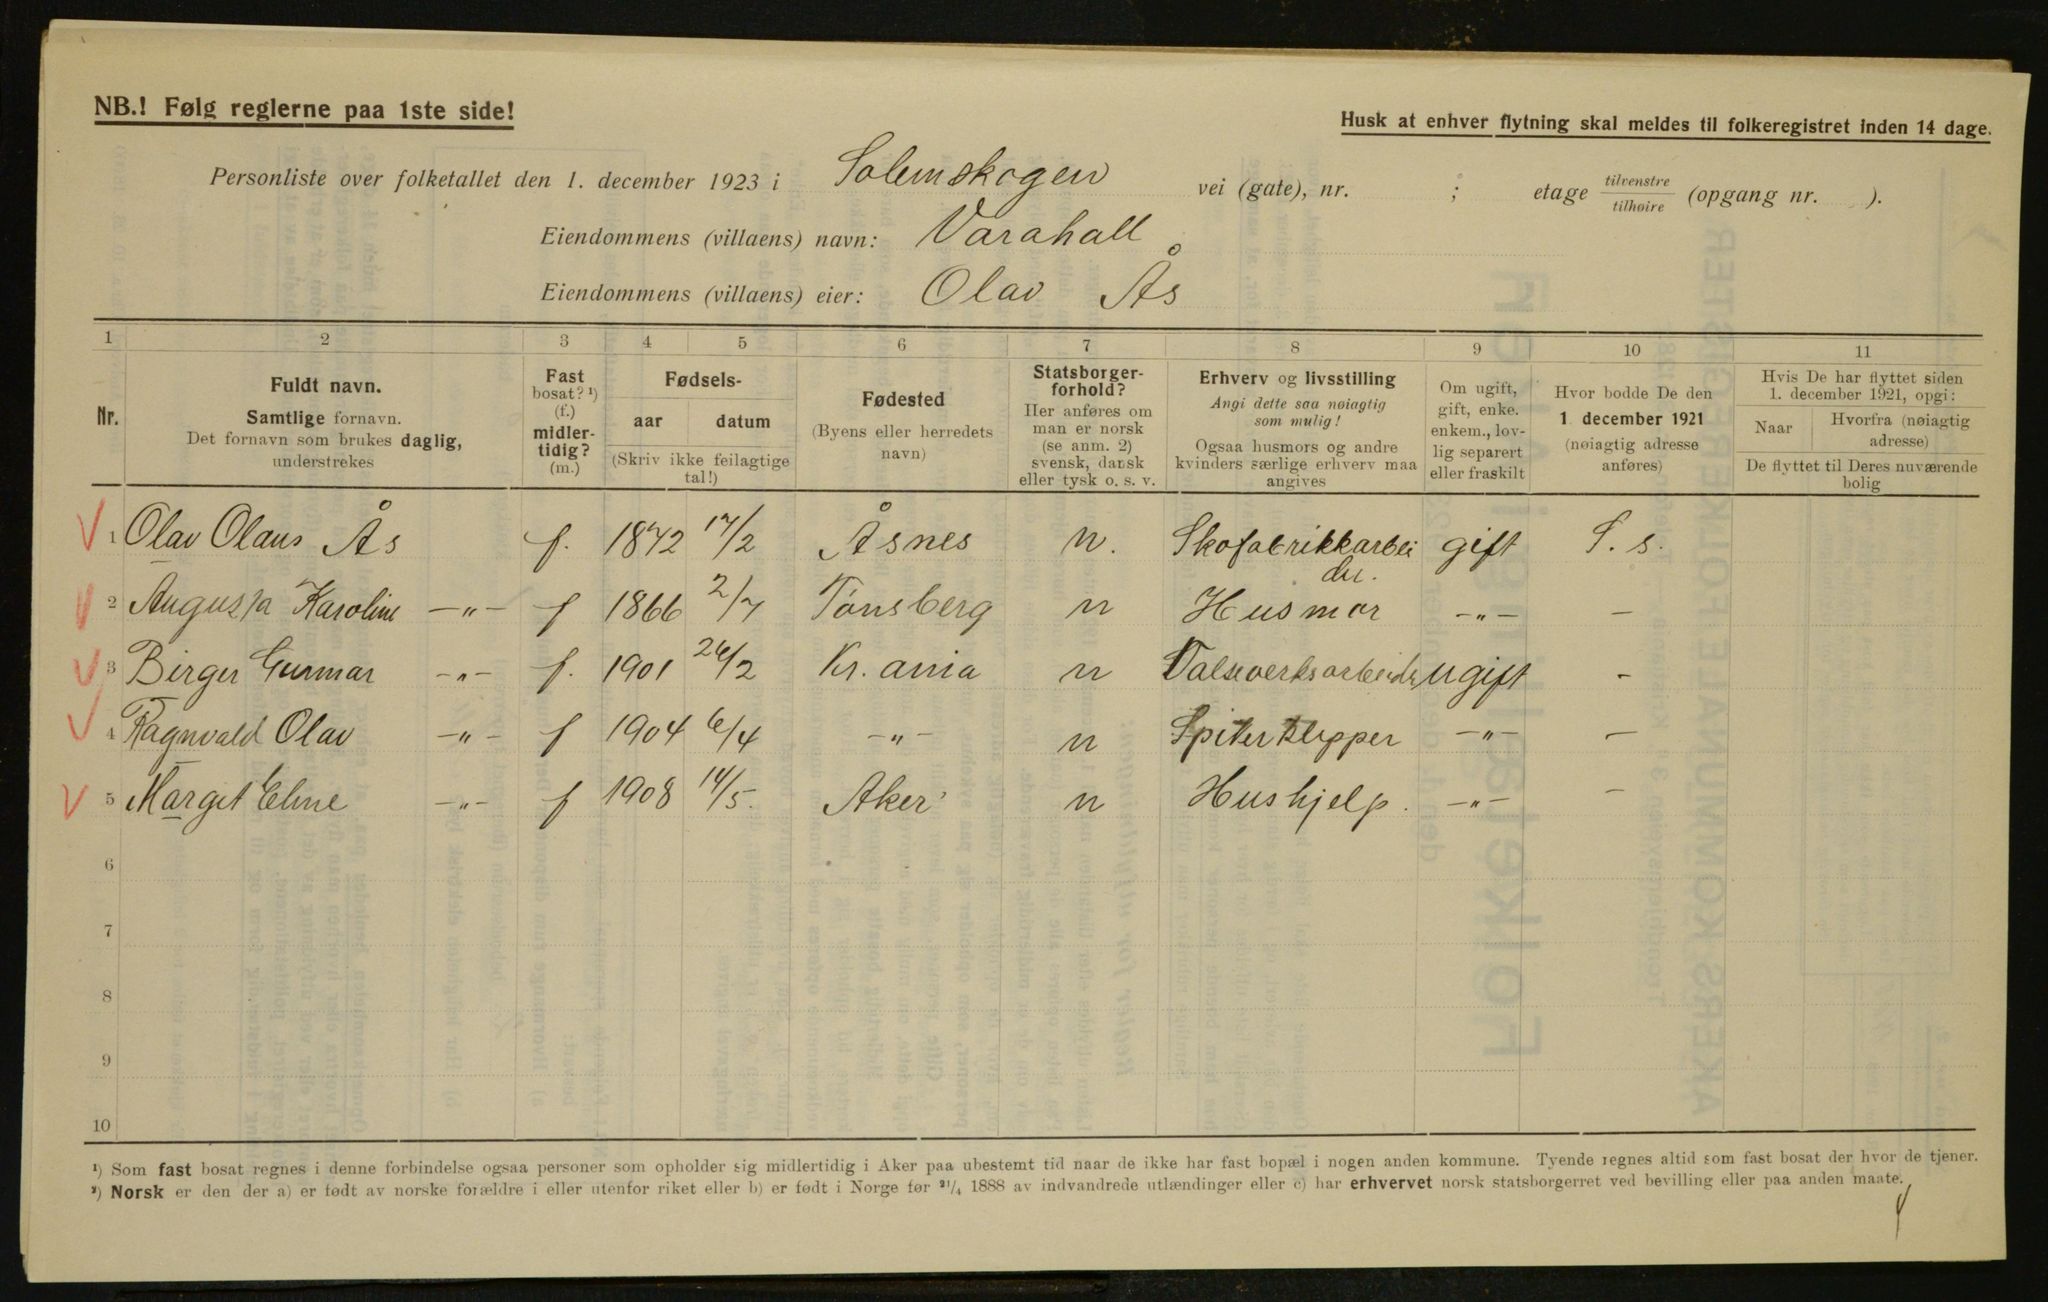 NB.! Følg reglerne paa 1ste side!
Husk at enhver flytning skal meldes til folkeregistret inden 14 dage.
Personliste over folketallet den 1. december 1923 i Solemskogen vei (gate), nr. ; etage tilvenstre tilhøire (opgang nr. ).
Eiendommens (villaens) navn: Varahall
Eiendommens (villaens) eier: Olav Ås
1 2 3 4 5 6 7 8 9 10 11
Nr.
Fuldt navn.
Samtlige fornavn.
Det fornavn som brukes daglig,
understrekes
Fast
bosat? ¹)
(f.)
midler-
tidig?
(m.)
Fødsels-
aar datum
(Skriv ikke feilagtige
tal!)
Fødested
(Byens eller herredets
navn)
Statsborger-
forhold?
Her anføres om
man er norsk
(se anm. 2)
svensk, dansk
eller tysk o. s. v.
Erhverv og livsstilling
Angi dette saa nøiagtig
som mulig!
Ogsaa husmors og andre
kvinders særlige erhverv maa
angives
Om ugift,
gift, enke.
enkem., lov-
lig separert
eller fraskilt
Hvor bodde De den
1 december 1921
(nøiagtig adresse
anføres)
Hvis De har flyttet siden
1. december 1921, opgi:
Naar Hvorfra (nøiagtig
adresse)
De flyttet til Deres nuværende
bolig
1 Olav Olaus Ås f. 1872 17/2 Åsnes n. Skofabrikkarbei gift S. s.
der.
2 Augusta Karoline —„— f 1866 2/7 Tønsberg n Husmor —„— —
3 Birger Gunnar —„— f. 1901 26/2 Kr.ania n Valseverksarbeider ugift —
4 Ragnvald Olav —„— f 1904 6/4 —„— n Spikerklipper —„— —
5 Margit Eline —„— f 1908 14/5. Aker n Hushjelp. —„— —
6
7
8
9
10
¹) Som fast bosat regnes i denne forbindelse ogsaa personer som opholder sig midlertidig i Aker paa ubestemt tid naar de ikke har fast bopæl i nogen anden kommune. Tyende regnes altid som fast bosat der hvor de tjener.
²) Norsk er den der a) er født av norske forældre i eller utenfor riket eller b) er født i Norge før ²¹/₄ 1888 av indvandrede utlændinger eller c) har erhvervet norsk statsborgerret ved bevilling eller paa anden maate.